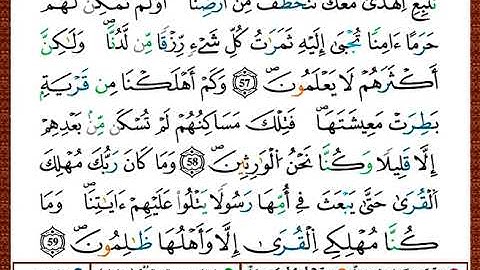 نَّتَّبِعِ ٱلْهُدَىٰ مَعَكَ نُتَخَطَّفْ مِنْ أَرْضِنَا ۚ أَوَلَمْ نُمَكِّن لَّهُمْ
حَرَمًا ءَامِنًا يُجْبَىٰٓ إِلَيْهِ ثَمَرَٰتُ كُلِّ شَىْءٍ رِّزْقًا مِّن لَّدُنَّا وَلَٰكِنَّ
أَكْثَرَهُمْ لَا يَعْلَمُونَ ٥٧ وَكَمْ أَهْلَكْنَا مِن قَرْيَةٍۭ
بَطِرَتْ مَعِيشَتَهَا ۖ فَتِلْكَ مَسَٰكِنُهُمْ لَمْ تُسْكَن مِّنۢ بَعْدِهِمْ
إِلَّا قَلِيلًا ۖ وَكُنَّا نَحْنُ ٱلْوَٰرِثِينَ ٥٨ وَمَا كَانَ رَبُّكَ مُهْلِكَ
ٱلْقُرَىٰ حَتَّىٰ يَبْعَثَ فِىٓ أُمِّهَا رَسُولًا يَتْلُوا۟ عَلَيْهِمْ ءَايَٰتِنَا ۚ وَمَا
كُنَّا مُهْلِكِى ٱلْقُرَىٰٓ إِلَّا وَأَهْلُهَا ظَٰلِمُونَ ٥٩